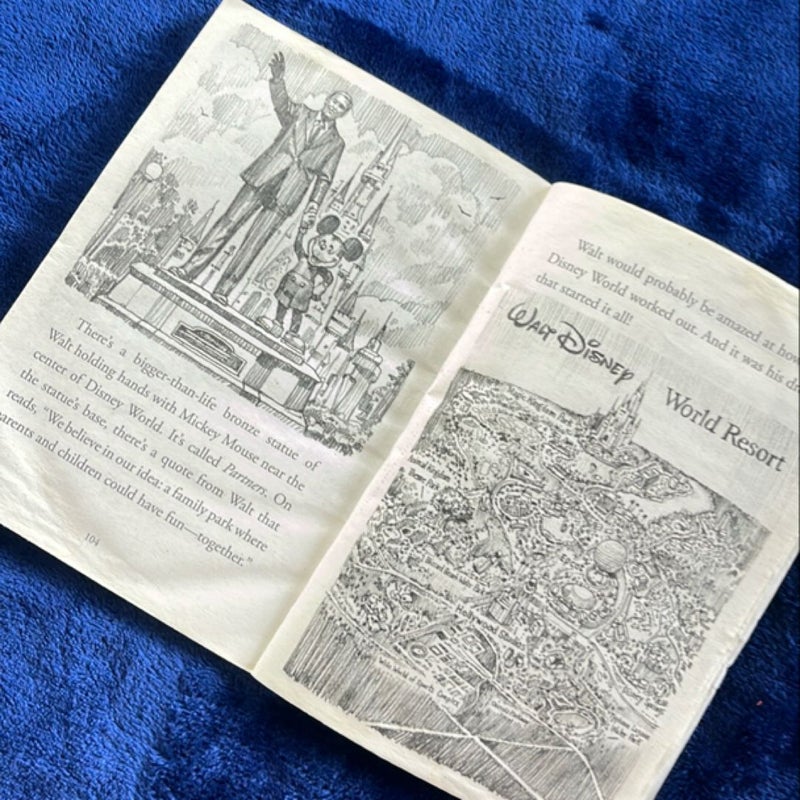 There's a bigger-than-life bronze statue of
Walt holding hands with Mickey Mouse near the
center of Disney World. It's called Partners. On
the statue's base, there's a quote from Walt that
reads, "We believe in our idea: a family park where
parents and children could have fun—together."
104
Walt would probably be amazed at how
Disney World worked out. And it was his
that started it all!
WALT DISNEY
World Resort